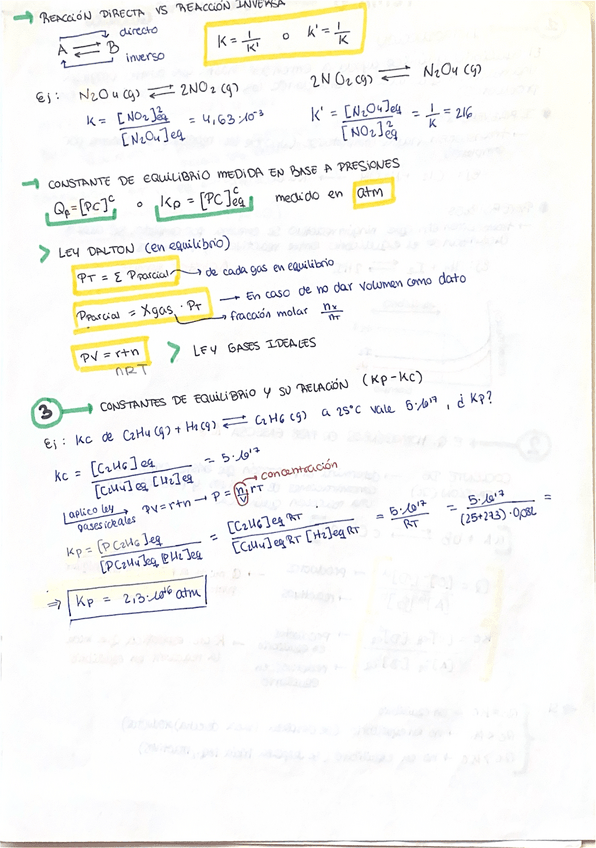 → REACCIÓN DIRECTA VS REACCIÓN INVERSA
directo
A ⇄ B
inverso
K = 1/K' o K' = 1/K
Ej: N2O4(g) ⇄ 2NO2(g)
2NO2(g) ⇄ N2O4(g)
K = [NO2]²eq / [N2O4]eq = 4,63·10⁻³
K' = [N2O4]eq / [NO2]²eq = 1/K = 216
→ CONSTANTE DE EQUILIBRIO MEDIDA EN BASE A PRESIONES
Qp = [PC]ᶜ o Kp = [PC]ᶜeq medido en atm
> LEY DALTON (en equilibrio)
PT = Σ Pparcial → de cada gas en equilibrio
Pparcial = Xgas · PT → En caso de no dar volumen como dato
→ fracción molar nx/nT
PV = r+n > LEY GASES IDEALES
nRT
3 → CONSTANTES DE EQUILIBRIO Y SU RELACIÓN (Kp-Kc)
Ej: Kc de C2H4(g) + H2(g) ⇄ C2H6(g) a 25°C vale 5·10¹⁷, ¿Kp?
Kc = [C2H6]eq / [C2H4]eq [H2]eq = 5·10¹⁷
→ concentración
aplico ley gases ideales → PV = r+n → P = n/V rT
Kp = [PC2H6]eq / [PC2H4]eq [PH2]eq = [C2H6]eq RT / [C2H4]eq RT [H2]eq RT = 5·10¹⁷ / RT = 5·10¹⁷ / (25+273)·0,082 =
⇒ Kp = 2,3·10¹⁶ atm